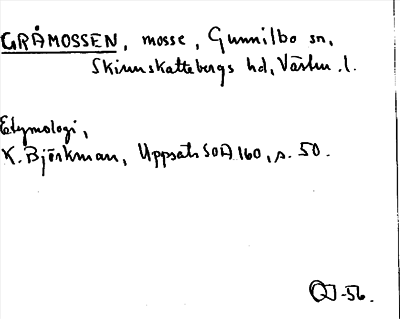 GRÅMOSSEN, mosse, Gunnilbo sn,
Skinnskattebergs hd, Västm. l.
Etymologi,
K. Björkman, Uppsats SOA 160, s. 50.
-56.